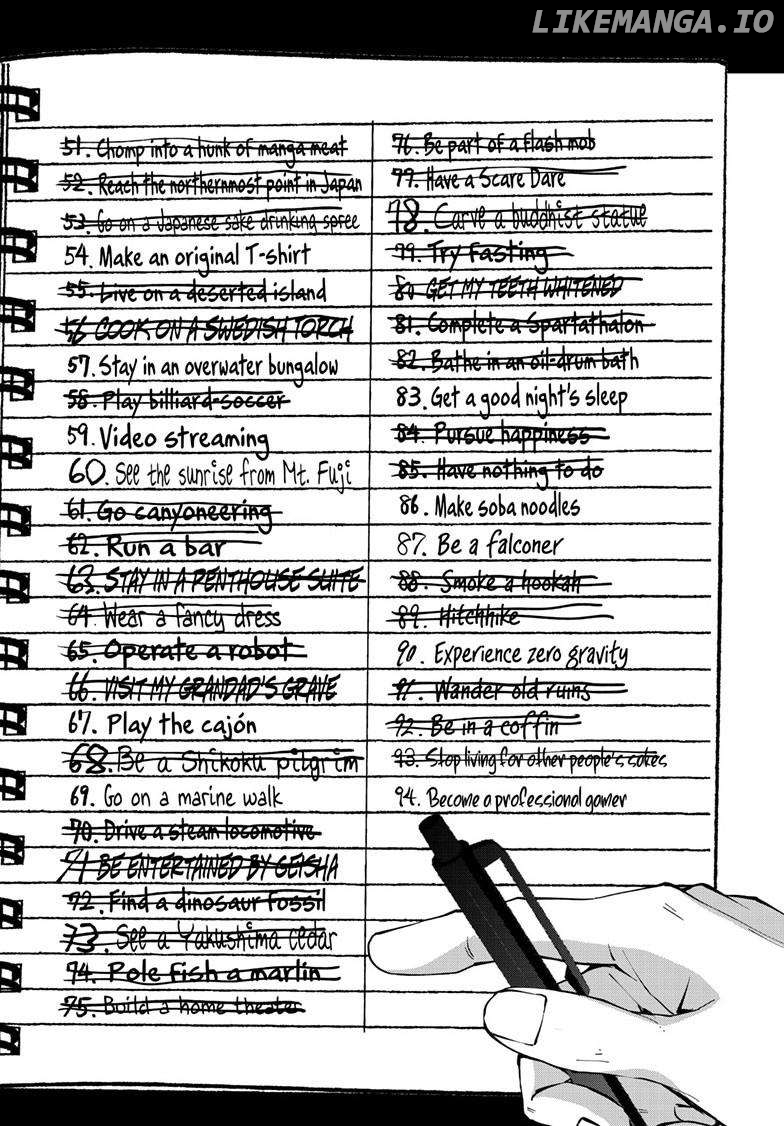 LIKEMANGA.IO
51. Chomp into a hunk of manga meat
52. Reach the northernmost point in Japan
53. Go on a Japanese sake drinking spree
54. Make an original T-shirt
55. Live on a deserted island
56 COOK ON A SWEDISH TORCH
57. Stay in an overwater bungalow
58. Play billiard-soccer
59. Video streaming
60. See the sunrise from Mt. Fuji
61. Go canyoneering
62. Run a bar
63. STAY IN A PENTHOUSE SUITE
64. Wear a fancy dress
65. Operate a robot
66. VISIT MY GRANDAD'S GRAVE
67. Play the cajón
68. Be a Shikoku pilgrim
69. Go on a marine walk
70. Drive a steam locomotive
71 BE ENTERTAINED BY GEISHA
72. Find a dinosaur fossil
73. See a Yakushima cedar
74. Pole fish a marlin
75. Build a home theater
76. Be part of a flash mob
77. Have a Scare Dare
78. Carve a buddhist statue
79. Try fasting
80 GET MY TEETH WHITENED
81. Complete a Spartathalon
82. Bathe in an oil-drum bath
83. Get a good night's sleep
84. Pursue happiness
85. Have nothing to do
86. Make soba noodles
87. Be a falconer
88. Smoke a hookah
89. Hitchhike
90. Experience zero gravity
91. Wander old ruins
92. Be in a coffin
93. Stop living for other people's sakes
94. Become a professional gamer